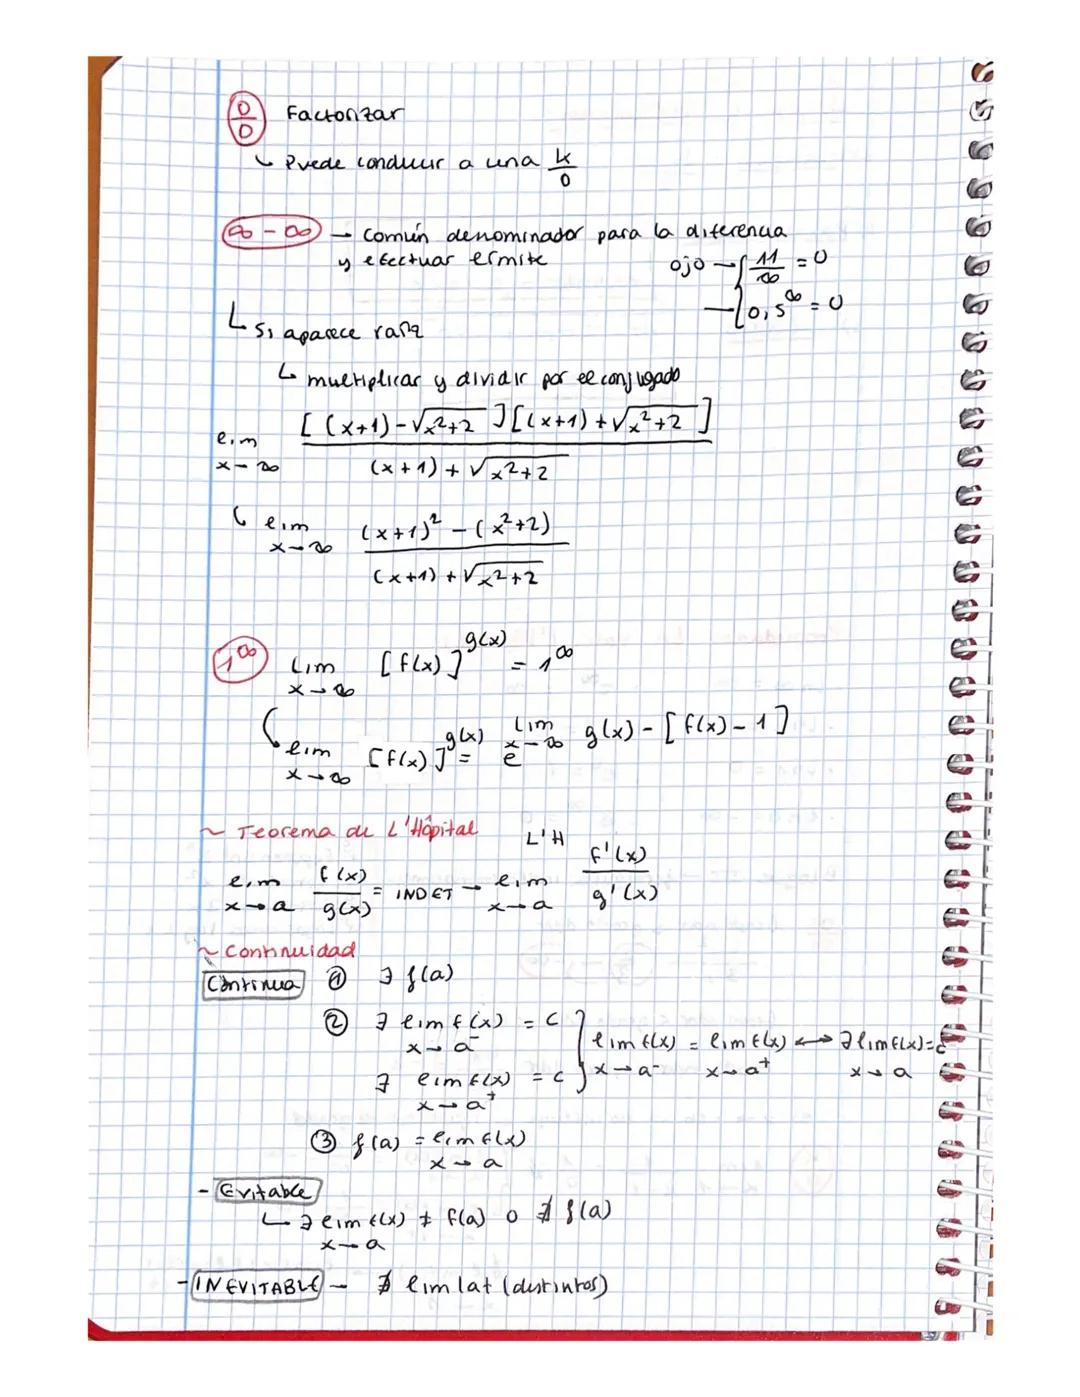 0/0 Factorizar
↳ Puede conducir a una k/0
∞ - ∞ → común denominador para la diferencia
y efectuar límite
ojo → { 11/∞ = 0
→ { 0,5^∞ = 0
↳ si aparece raíz
↳ multiplicar y dividir por el conjugado
lim x→∞ [(x+1)-√x²+2][(x+1)+√x²+2] / (x+1)+√x²+2
↳ lim x→∞ (x+1)² - (x²+2) / (x+1)+√x²+2
1^∞ Lim x→∞ [f(x)]^g(x) = 1^∞
↳ lim x→∞ [f(x)]^g(x) = e^Lim x→∞ g(x) - [f(x) - 1]
~ Teorema de L'Hôpital
lim x→a f(x)/g(x) = INDET → L'H lim x→a f'(x)/g'(x)
~ Continuidad
Continua ① ∃ f(a)
② ∃ lim f(x) = c x→a⁻
∃ lim f(x) = c x→a⁺
} lim f(x) x→a⁻ = lim f(x) x→a⁺ ↔ ∃ lim f(x) = c x→a
③ f(a) = lim f(x) x→a
- Evitable
↳ ∃ lim f(x) x→a ≠ f(a) o ∄ f(a)
- INEVITABLE → ∄ lim lat (distintos)